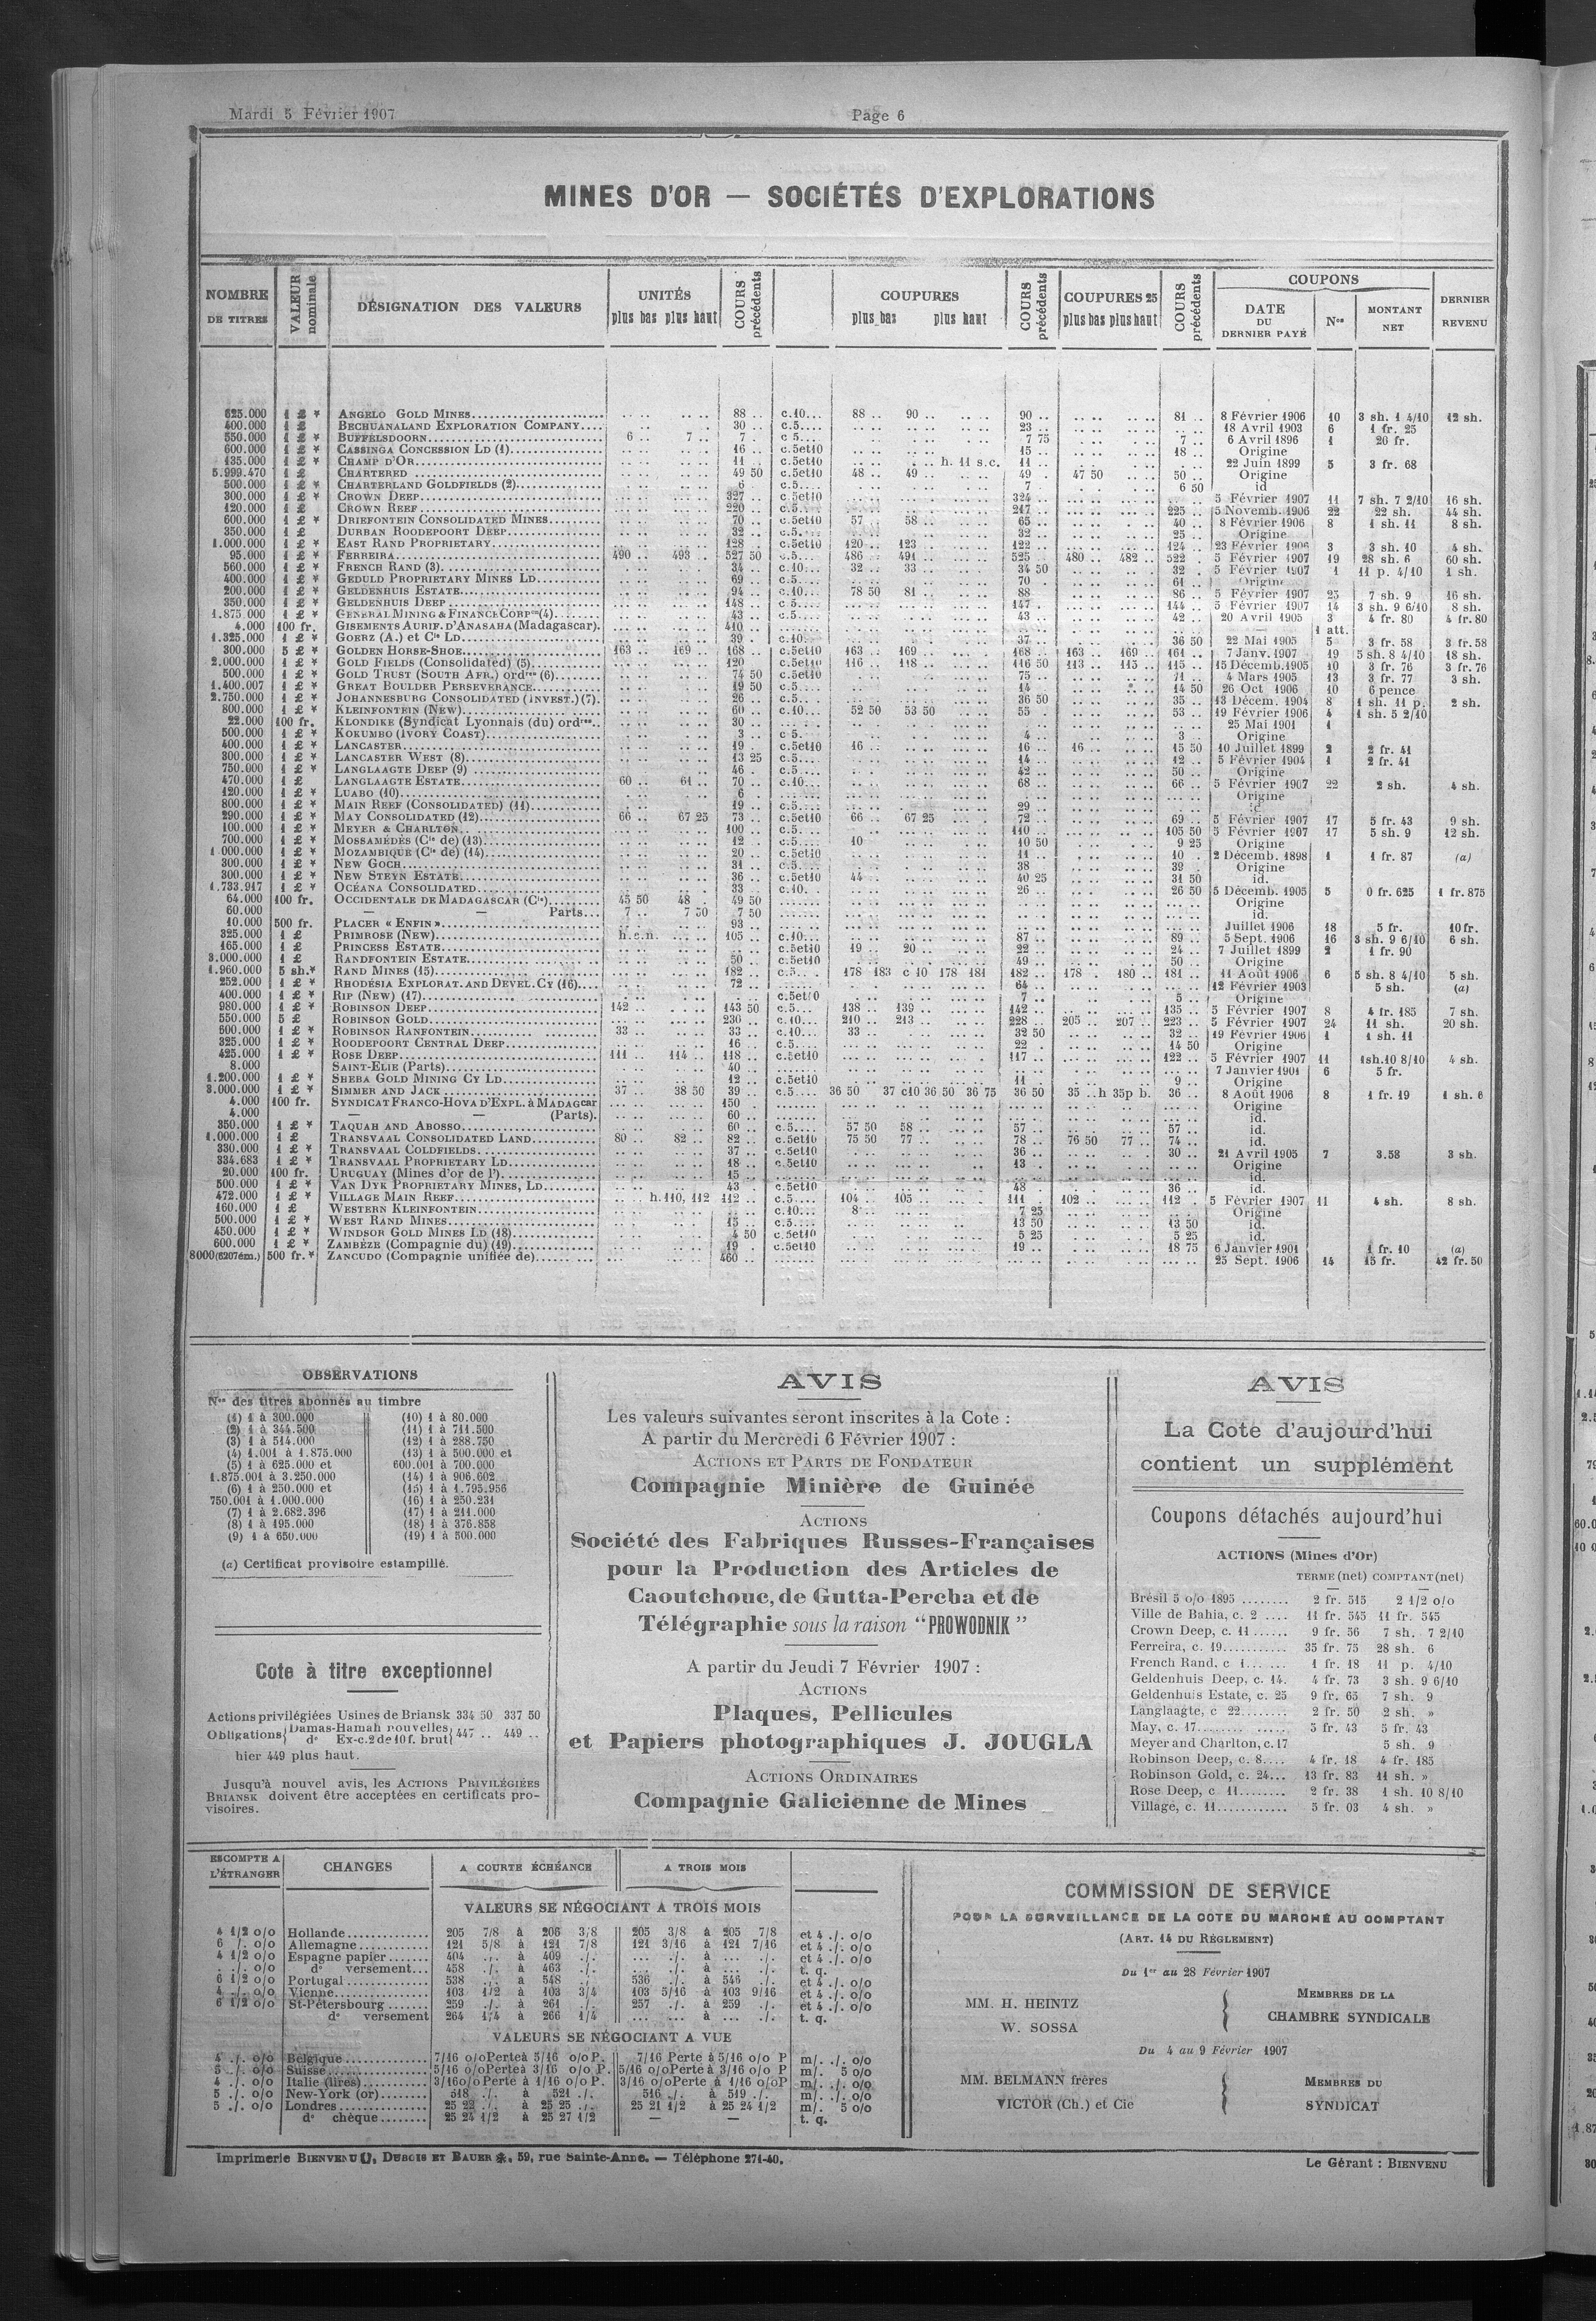 Mardi 5 Février 1907 Page 6
MINES D'OR — SOCIÉTÉS D'EXPLORATIONS
NOMBRE DE TITRES VALEUR nominale DÉSIGNATION DES VALEURS UNITÉS plus bas plus haut COURS précédents COUPURES plus bas plus haut COURS précédents COUPURES 25 plus bas plus haut COURS précédents COUPONS DATE DU DERNIER PAYÉ Nos MONTANT NET DERNIER REVENU
625.000 1 £ * ANGELO GOLD MINES 88 .. c.10... 88 .. 90 .. 90 .. 81 .. 8 Février 1906 10 3 sh. 1 4/10 12 sh.
400.000 1 £ BECHUANALAND EXPLORATION COMPANY 30 .. c.5.... 23 .. 18 Avril 1903 6 1 fr. 25
550.000 1 £ * BUFFELSDOORN 6 .. 7 .. 7 . c 5... 7 75 7 .. 6 Avril 1896 1 20 fr.
600.000 1 £ * CASSINGA CONCESSION LD (1) 16 .. c.5et10 15 .. 18 .. Origine
135.000 1 £ * CHAMP D'OR 11 .. c.5et10 h. 11 s.c. 11 .. 22 Juin 1899 5 3 fr. 68
5.999.470 1 £ CHARTERED 49 50 c.5et10 48 .. 49 .. 49 . 47 50 50 .. Origine
500.000 1 £ * CHARTERLAND GOLDFIELDS (2) 6 c.5.... 7 . 6 50 id
300.000 1 £ * CROWN DEEP 327 .. c.5et10 324 .. 5 Février 1907 11 7 sh. 7 2/10 16 sh.
120.000 1 £ CROWN REEF 220 .. c.5... 217 .. 225 .. 5 Novemb. 1906 22 22 sh. 44 sh.
600.000 1 £ * DRIEFONTEIN CONSOLIDATED MINES 70 .. c.5et10 57 .. 58 .. 65 .. 40 .. 8 Février 1906 8 1 sh. 11 8 sh.
350.000 1 £ DURBAN ROODEPOORT DEEP 32 .. c.5.... 32 .. 25 .. Origine
1.000.000 1 £ * EAST RAND PROPRIETARY 128 .. c.5et10 120 .. 123 .. 122 .. 124 .. 23 Février 1906 3 3 sh. 10 4 sh.
95.000 1 £ * FERREIRA 490 .. 493 .. 527 50 c.5.... 486 .. 491 .. 525 .. 480 .. 482 .. 522 . 5 Février 1907 19 28 sh. 6 60 sh.
560.000 1 £ * FRENCH RAND (3) 34 .. c.10... 32 .. 33 .. 34 50 32 .. 5 Février 1907 1 11 p. 4/10 1 sh.
400.000 1 £ * GEDULD PROPRIETARY MINES LD 69 .. c.5.... 70 . 61 .. Origine
200.000 1 £ * GELDENHUIS ESTATE 94 .. c.10... 78 50 81 .. 88 .. 86 .. 5 Février 1907 25 7 sh. 9 16 sh.
350.000 1 £ * GELDENHUIS DEEP 148 .. c.5.... 147 .. 144 .. 5 Février 1907 14 3 sh. 9 6/10 8 sh.
1.875.000 1 £ * GENERAL MINING & FINANCE CORPon (4) 43 .. c.5.... 43 .. 42 .. 20 Avril 1905 3 4 fr. 80 4 fr.80
4.000 100 fr. GISEMENTS AURIF. D'ANASAHA (Madagascar). 410 .. — 1 att.
1.325.000 1 £ * GOERZ (A.) et Cie LD 39 . c.10... 37 .. 36 50 22 Mai 1905 5 3 fr. 58 3 fr.58
300.000 5 £ * GOLDEN HORSE-SHOE 163 .. 169 .. 168 .. c.5et10 163 .. 169 .. 168 .. 163 .. 169 .. 161 .. 7 Janv. 1907 19 5 sh. 8 4/10 18 sh.
2.000.000 1 £ * GOLD FIELDS (Consolidated) (5) 120 .. c.5et10 116 .. 118 .. 116 50 113 .. 115 .. 115 .. 15 Décemb.1905 10 3 fr. 76 3 fr.76
500.000 1 £ * GOLD TRUST (SOUTH AFR.) ordres (6) 74 50 c.5et10 75 .. 71 .. 4 Mars 1905 13 3 fr. 77 3 sh.
1.400.007 1 £ * GREAT BOULDER PERSEVERANCE 19 50 c.5.... 14 .. 14 50 26 Oct 1906 10 6 pence
2.750.000 1 £ * JOHANNESBURG CONSOLIDATED (INVEST.) (7). 26 .. c.5.... 36 50 35 .. 13 Décem. 1904 8 1 sh. 11 p. 2 sh.
800.000 1 £ * KLEINFONTEIN (NEW) 60 .. c.10... 52 50 53 50 55 . 53 .. 19 Février 1906 4 1 sh. 5 2/10
22.000 100 fr. KLONDIKE (Syndicat Lyonnais (du) ordres.. 30 .. 25 Mai 1901 1
500.000 1 £ * KOKUMBO (IVORY COAST) 3 .. c 5... 4 .. 3 .. Origine
400.000 1 £ * LANCASTER 19 . c.5et10 16 .. 16 .. 16 .. 15 50 10 Juillet 1899 2 2 fr. 41
300.000 1 £ * LANCASTER WEST (8) 13 25 c.5.... 14 .. 12 .. 5 Février 1904 1 2 fr. 41
750.000 1 £ * LANGLAAGTE DEEP (9) 46 . c.5.... 42 .. 50 .. Origine
470.000 1 £ LANGLAAGTE ESTATE 60 .. 61 .. 70 .. c.10... 68 .. 66 .. 5 Février 1907 22 2 sh. 4 sh.
120.000 1 £ * LUABO (10) 6 .. Origine
800.000 1 £ * MAIN REEF (CONSOLIDATED) (11) 19 .. c.5.... 29 .. id.
290.000 1 £ * MAY CONSOLIDATED (12) 66 .. 67 25 73 .. c.5et10 66 .. 67 25 72 .. 69 .. 5 Février 1907 17 5 fr. 43 9 sh.
100.000 1 £ * MEYER & CHARLTON 100 .. c.5... 110 .. 105 50 5 Février 1907 17 5 sh. 9 12 sh.
700.000 1 £ * MOSSAMÉDÈS (Cie de) (13) 12 .. c.5.... 10 10 50 9 25 Origine
1.000.000 1 £ * MOZAMBIQUE (Cie de) (14) 20 .. c.5et10 11 .. 10 . 2 Décemb. 1898 1 1 fr. 87 (a)
300.000 1 £ * NEW GOCH 31 .. c.5.... 38 .. 39 .. Origine
300.000 1 £ * NEW STEYN ESTATE 36 .. c.5et10 44 .. 40 25 31 50 id.
1.733.917 1 £ * OCÉANA CONSOLIDATED 33 .. c.10.. 26 .. 26 50 5 Décemb. 1905 5 0 fr. 625 1 fr.875
64.000 100 fr. OCCIDENTALE DE MADAGASCAR (Cie) 45 50 48 . 49 50 Origine
60.000 — — Parts... 7 .. 7 50 7 50 id.
10.000 500 fr. PLACER « ENFIN » 93 .. Juillet 1906 18 5 fr. 10 fr.
325.000 1 £ PRIMROSE (NEW) h.c.n. 105 .. c.10... 87 .. 89 .. 5 Sept. 1906 16 3 sh. 9 6/10 6 sh.
165.000 1 £ PRINCESS ESTATE c.5et10 19 .. 20 .. 22 .. 24 .. 7 Juillet 1899 2 1 fr. 90
3.000.000 1 £ RANDFONTEIN ESTATE 50 .. c.5et10 49 .. 50 .. Origine
1.960.000 5 sh.* RAND MINES (15) 182 .. c.5... 178 183 c 10 178 181 182 .. 178 . 180 .. 181 .. 11 Août 1906 6 5 sh. 8 4/10 5 sh.
252.000 1 £ * RHODÉSIA EXPLORAT. AND DEVEL. CY (16) 72 .. 64 .. 12 Février 1903 5 sh. (a)
400.000 1 £ * RIP (NEW) (17) c.5et10 7 .. 5 .. Origine
980.000 1 £ * ROBINSON DEEP 142 .. 143 50 c.5.... 138 .. 139 .. 142 .. 135 .. 5 Février 1907 8 4 fr. 185 7 sh.
550.000 5 £ ROBINSON GOLD 230 .. c.10... 210 .. 213 .. 228 .. 205 .. 207 .. 223 .. 5 Février 1907 24 11 sh. 20 sh.
600.000 1 £ * ROBINSON RANFONTEIN 33 .. 33 .. c.10... 33 .. 32 50 32 .. 19 Février 1906 1 1 sh. 11
325.000 1 £ * ROODEPOORT CENTRAL DEEP 16 .. c.5.... 22 .. 14 50 Origine
425.000 1 £ * ROSE DEEP 111 .. 114 .. 118 .. c.5et10 117 .. 122 .. 5 Février 1907 11 1sh.10 8/10 4 sh.
8.000 SAINT-ELIE (Parts) 40 .. 7 Janvier 1901 6 5 fr.
1.200.000 1 £ * SHEBA GOLD MINING CY LD 12 .. c.5et10 11 .. 9 .. Origine
3.000.000 1 £ * SIMMER AND JACK 37 .. 38 50 39 .. c.5.... 36 50 37 c10 36 50 36 75 36 50 35 ..h 35p b. 36 .. 8 Août 1906 8 1 fr. 19 1 sh. 6
4.000 100 fr. SYNDICAT FRANCO-HOVA D'EXPL. à MADAGcar 150 .. Origine
4.000 — — (Parts). 60 .. id.
350.000 1 £ * TAQUAH AND ABOSSO 60 .. c.5.... 57 50 58 .. 57 .. 57 .. id.
1.000.000 1 £ TRANSVAAL CONSOLIDATED LAND 80 .. 82 .. 82 .. c.5et10 75 50 77 .. 78 .. 76 50 77 .. 74 .. id.
330.000 1 £ * TRANSVAAL COLDFIELDS 37 .. c.5et10 36 .. 30 .. 21 Avril 1905 7 3.58 3 sh.
334.683 1 £ * TRANSVAAL PROPRIETARY LD 18 .. c.5et10 13 . Origine
20.000 100 fr. URUGUAY (Mines d'or de l') 15 .. id.
500.000 1 £ * VAN DYK PROPRIETARY MINES, LD 43 c.5et10 48 . 36 .. id.
472.000 1 £ * VILLAGE MAIN REEF h.110, 112 112 .. c.5.... 104 .. 105 .. 111 . 102 .. 112 . 5 Février 1907 11 4 sh. 8 sh.
160.000 1 £ WESTERN KLEINFONTEIN c.10... 8 .. 7 25 Origine
500.000 1 £ * WEST RAND MINES 15 .. c.5.... 13 50 13 50 id.
450.000 1 £ * WINDSOR GOLD MINES LD (18) 4 50 c.5et10 5 25 5 25 id.
600.000 1 £ * ZAMBÈZE (Compagnie du) (19) 19 . c.5et10 19 .. 18 75 6 Janvier 1901 1 fr. 10 (a)
8000(6207ém.) 500 fr.* ZANCUDO (Compagnie unifiée de) 460 .. 25 Sept. 1906 14 15 fr. 42 fr. 50
OBSERVATIONS
Nos des titres abonnés au timbre
(1) 1 à 300.000
(2) 1 à 344.500
(3) 1 à 514.000
(4) 1.001 à 1.875.000
(5) 1 à 625.000 et
1.875.001 à 3.250.000
(6) 1 à 250.000 et
750.001 à 1.000.000
(7) 1 à 2.682.396
(8) 1 à 195.000
(9) 1 à 650.000
(10) 1 à 80.000
(11) 1 à 711.500
(12) 1 à 288.750
(13) 1 à 500.000 et
600.001 à 700.000
(14) 1 à 906.602
(15) 1 à 1.795.956
(16) 1 à 250.231
(17) 1 à 211.000
(18) 1 à 376.858
(19) 1 à 500.000
(a) Certificat provisoire estampillé.
Cote à titre exceptionnel
Actions privilégiées Usines de Briansk 334 50 337 50
Obligations { Damas-Hamah nouvelles
do Ex-c.2 de 10 f. brut } 447 .. 449 ..
hier 449 plus haut.
Jusqu'à nouvel avis, les ACTIONS PRIVILÉGIÉES
BRIANSK doivent être acceptées en certificats pro-
visoires.
AVIS
Les valeurs suivantes seront inscrites à la Cote :
A partir du Mercredi 6 Février 1907 :
ACTIONS ET PARTS DE FONDATEUR
Compagnie Minière de Guinée
ACTIONS
Société des Fabriques Russes-Françaises
pour la Production des Articles de
Caoutchouc, de Gutta-Percha et de
Télégraphie sous la raison “PROWODNIK”
A partir du Jeudi 7 Février 1907 :
ACTIONS
Plaques, Pellicules
et Papiers photographiques J. JOUGLA
ACTIONS ORDINAIRES
Compagnie Galicienne de Mines
AVIS
La Cote d'aujourd'hui
contient un supplément
Coupons détachés aujourd'hui
ACTIONS (Mines d'Or)
TERME (net) COMPTANT (net)
Brésil 5 o/o 1895 ........ 2 fr. 515 2 1/2 o/o
Ville de Bahia, c. 2 .... 11 fr. 545 11 fr. 545
Crown Deep, c. 11 ...... 9 fr. 56 7 sh. 7 2/10
Ferreira, c. 19........... 35 fr. 75 28 sh. 6
French Rand. c 1....... 1 fr. 18 11 p. 4/10
Geldenhuis Deep, c. 14. 4 fr. 73 3 sh. 9 6/10
Geldenhuis Estate, c. 25 9 fr. 65 7 sh. 9
Langlaagte, c 22........ 2 fr. 50 2 sh. »
May, c. 17............. 5 fr. 43 5 fr. 43
Meyer and Charlton, c.17 5 sh. 9
Robinson Deep, c. 8.... 4 fr. 18 4 fr. 185
Robinson Gold, c. 24... 13 fr. 83 11 sh. »
Rose Deep, c 11........ 2 fr. 38 1 sh. 10 8/10
Village, c. 11............ 5 fr. 03 4 sh. »
ESCOMPTE A L'ÉTRANGER CHANGES A COURTE ÉCHÉANCE A TROIS MOIS
VALEURS SE NÉGOCIANT A TROIS MOIS
4 1/2 o/o Hollande 205 7/8 à 206 3/8 205 3/8 à 205 7/8 et 4 ./. o/o
6 ./. o/o Allemagne 121 5/8 à 121 7/8 121 3/16 à 121 7/16 et 4 ./. o/o
4 1/2 o/o Espagne papier 404 ... à 409 ./. ... ./. à ... ./. et 4 ./. o/o
. ./. o/o do versement... 458 ./. à 463 ./. ... ./. à ... ./. t. q.
6 1/2 o/o Portugal 538 ./. à 548 ./. 536 ./. à 546 ./. et 4 ./. o/o
4 ./. o/o Vienne 103 1/2 à 103 3/4 103 5/16 à 103 9/16 et 4 ./. o/o
6 1/2 o/o St-Pétersbourg 259 ./. à 261 ./. 257 ./. à 259 ./. et 4 ./. o/o
do versement 264 1/4 à 266 1/4 ... ... à ... ./. t. q.
VALEURS SE NÉGOCIANT A VUE
4 ./. o/o Belgique 7/16 o/o Perte à 5/16 o/o P. 7/16 Perte à 5/16 o/o P m/. ./. o/o
5 ./. o/o Suisse 5/16 o/o Perte à 3/16 o/o P. 5/16 o/o Perte à 3/16 o/o P m/. 5 o/o
4 ./. o/o Italie (lires) 3/16 o/o Perte à 1/16 o/o P. 3/16 o/o Perte à 1/16 o/o P m/. ./. o/o
5 ./. o/o New-York (or) 518 ./. à 521 ./. 516 ./. à 519 ./. m/. ./. o/o
5 ./. o/o Londres 25 22 ./. à 25 25 ./. 25 21 1/2 à 25 24 1/2 m/. 5 o/o
do chèque 25 24 1/2 à 25 27 1/2 — — t. q.
COMMISSION DE SERVICE
POUR LA SURVEILLANCE DE LA COTE DU MARCHÉ AU COMPTANT
(ART. 14 DU RÈGLEMENT)
Du 1er au 28 Février 1907
MM. H. HEINTZ
W. SOSSA
MEMBRES DE LA
CHAMBRE SYNDICALE
Du 4 au 9 Février 1907
MM. BELMANN frères
VICTOR (Ch.) et Cie
MEMBRES DU
SYNDICAT
Imprimerie BIENVENU, DUBOIS ET BAUER, 59, rue Sainte-Anne. — Téléphone 271-40.
Le Gérant : BIENVENU